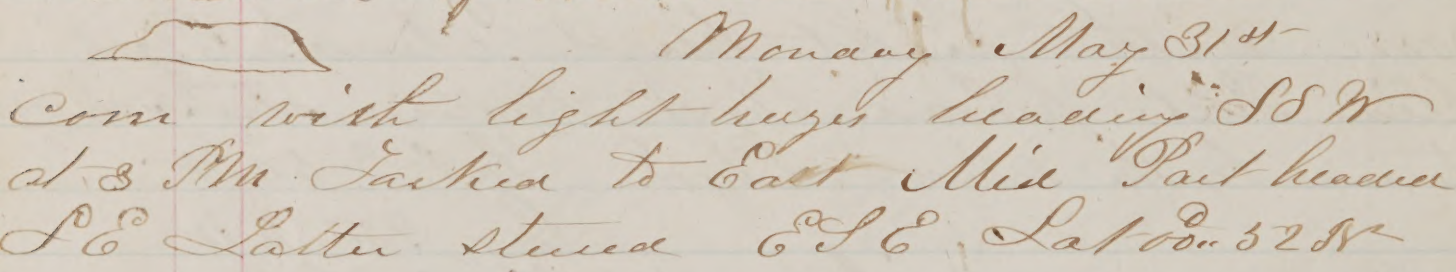 Monday May 31st
Com with light heading SSW
at 3 PM Tacked to East Mid Part headed
SE Latter steued ESE Lat 00.. 32 N